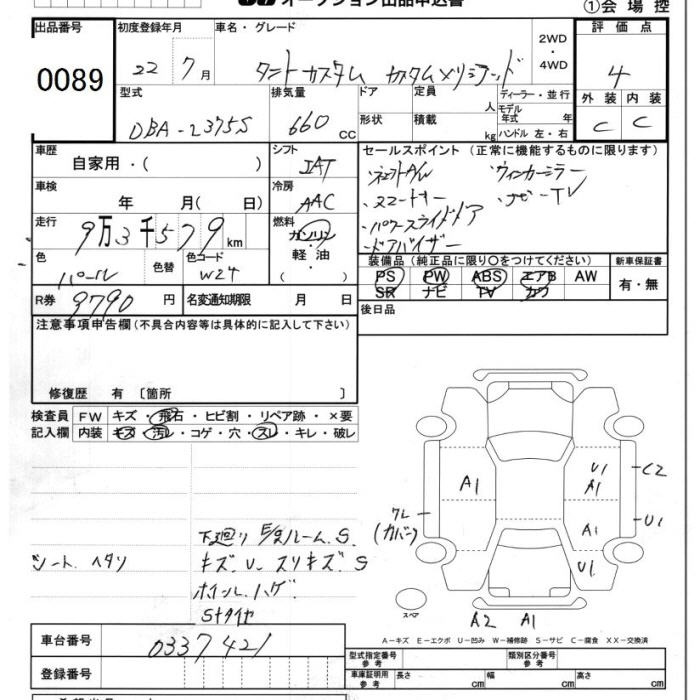 オークション出品申込書
①会場控
出品番号 初度登録年月 車名・グレード 評価点
0089 22 7月 タントカスタム カスタムXリミテッド 2WD・4WD 4
型式 排気量 ドア 定員 人 ディーラー・並行 外装 内装
DBA-L375S 660 CC 形状 積載 kg モデル年式 年 ハンドル 左・右 C C
車歴 シフト セールスポイント (正常に機能するものに限ります)
自家用・( ) IAT ・純正AW ・ウィンカーミラー
車検 冷房 ・スマートキー ・ナビ-TV
年 月( 日) AAC ・パワースライドドア
走行 燃料 ・ドアバイザー
9万3千579km ガソリン・軽油・( )
色 色替 色コード 装備品 (純正品に限り○をつけてください) 新車保証書
パール W24 PS PW ABS エアB AW 有・無
SR ナビ TV カワ
R券 9790円 名変通知期限 月 日 後日品
注意事項申告欄(不具合内容等は具体的に記入して下さい)
修復歴 有 〔箇所 〕
検査員 FW キズ・飛石・ヒビ割・リペア跡・×要
記入欄 内装 キズ・汚レ・コゲ・穴・スレ・キレ・破レ
シート ヘタリ
下廻り E/gルーム.S
キズ.U.スリキズ.S
ホイール.ハゲ.
Sタイヤ
A1 U1 A1 C2
ワレ (カバー) A1 U1
U1
スペア A2 A1
A-キズ E-エクボ U-凹み W-補修跡 S-サビ C-腐食 XX-交換済
車台番号 0337421
型式指定番号 参考 類別区分番号 参考
登録番号 車庫証明用 参考 長さ cm 幅 cm 高さ cm